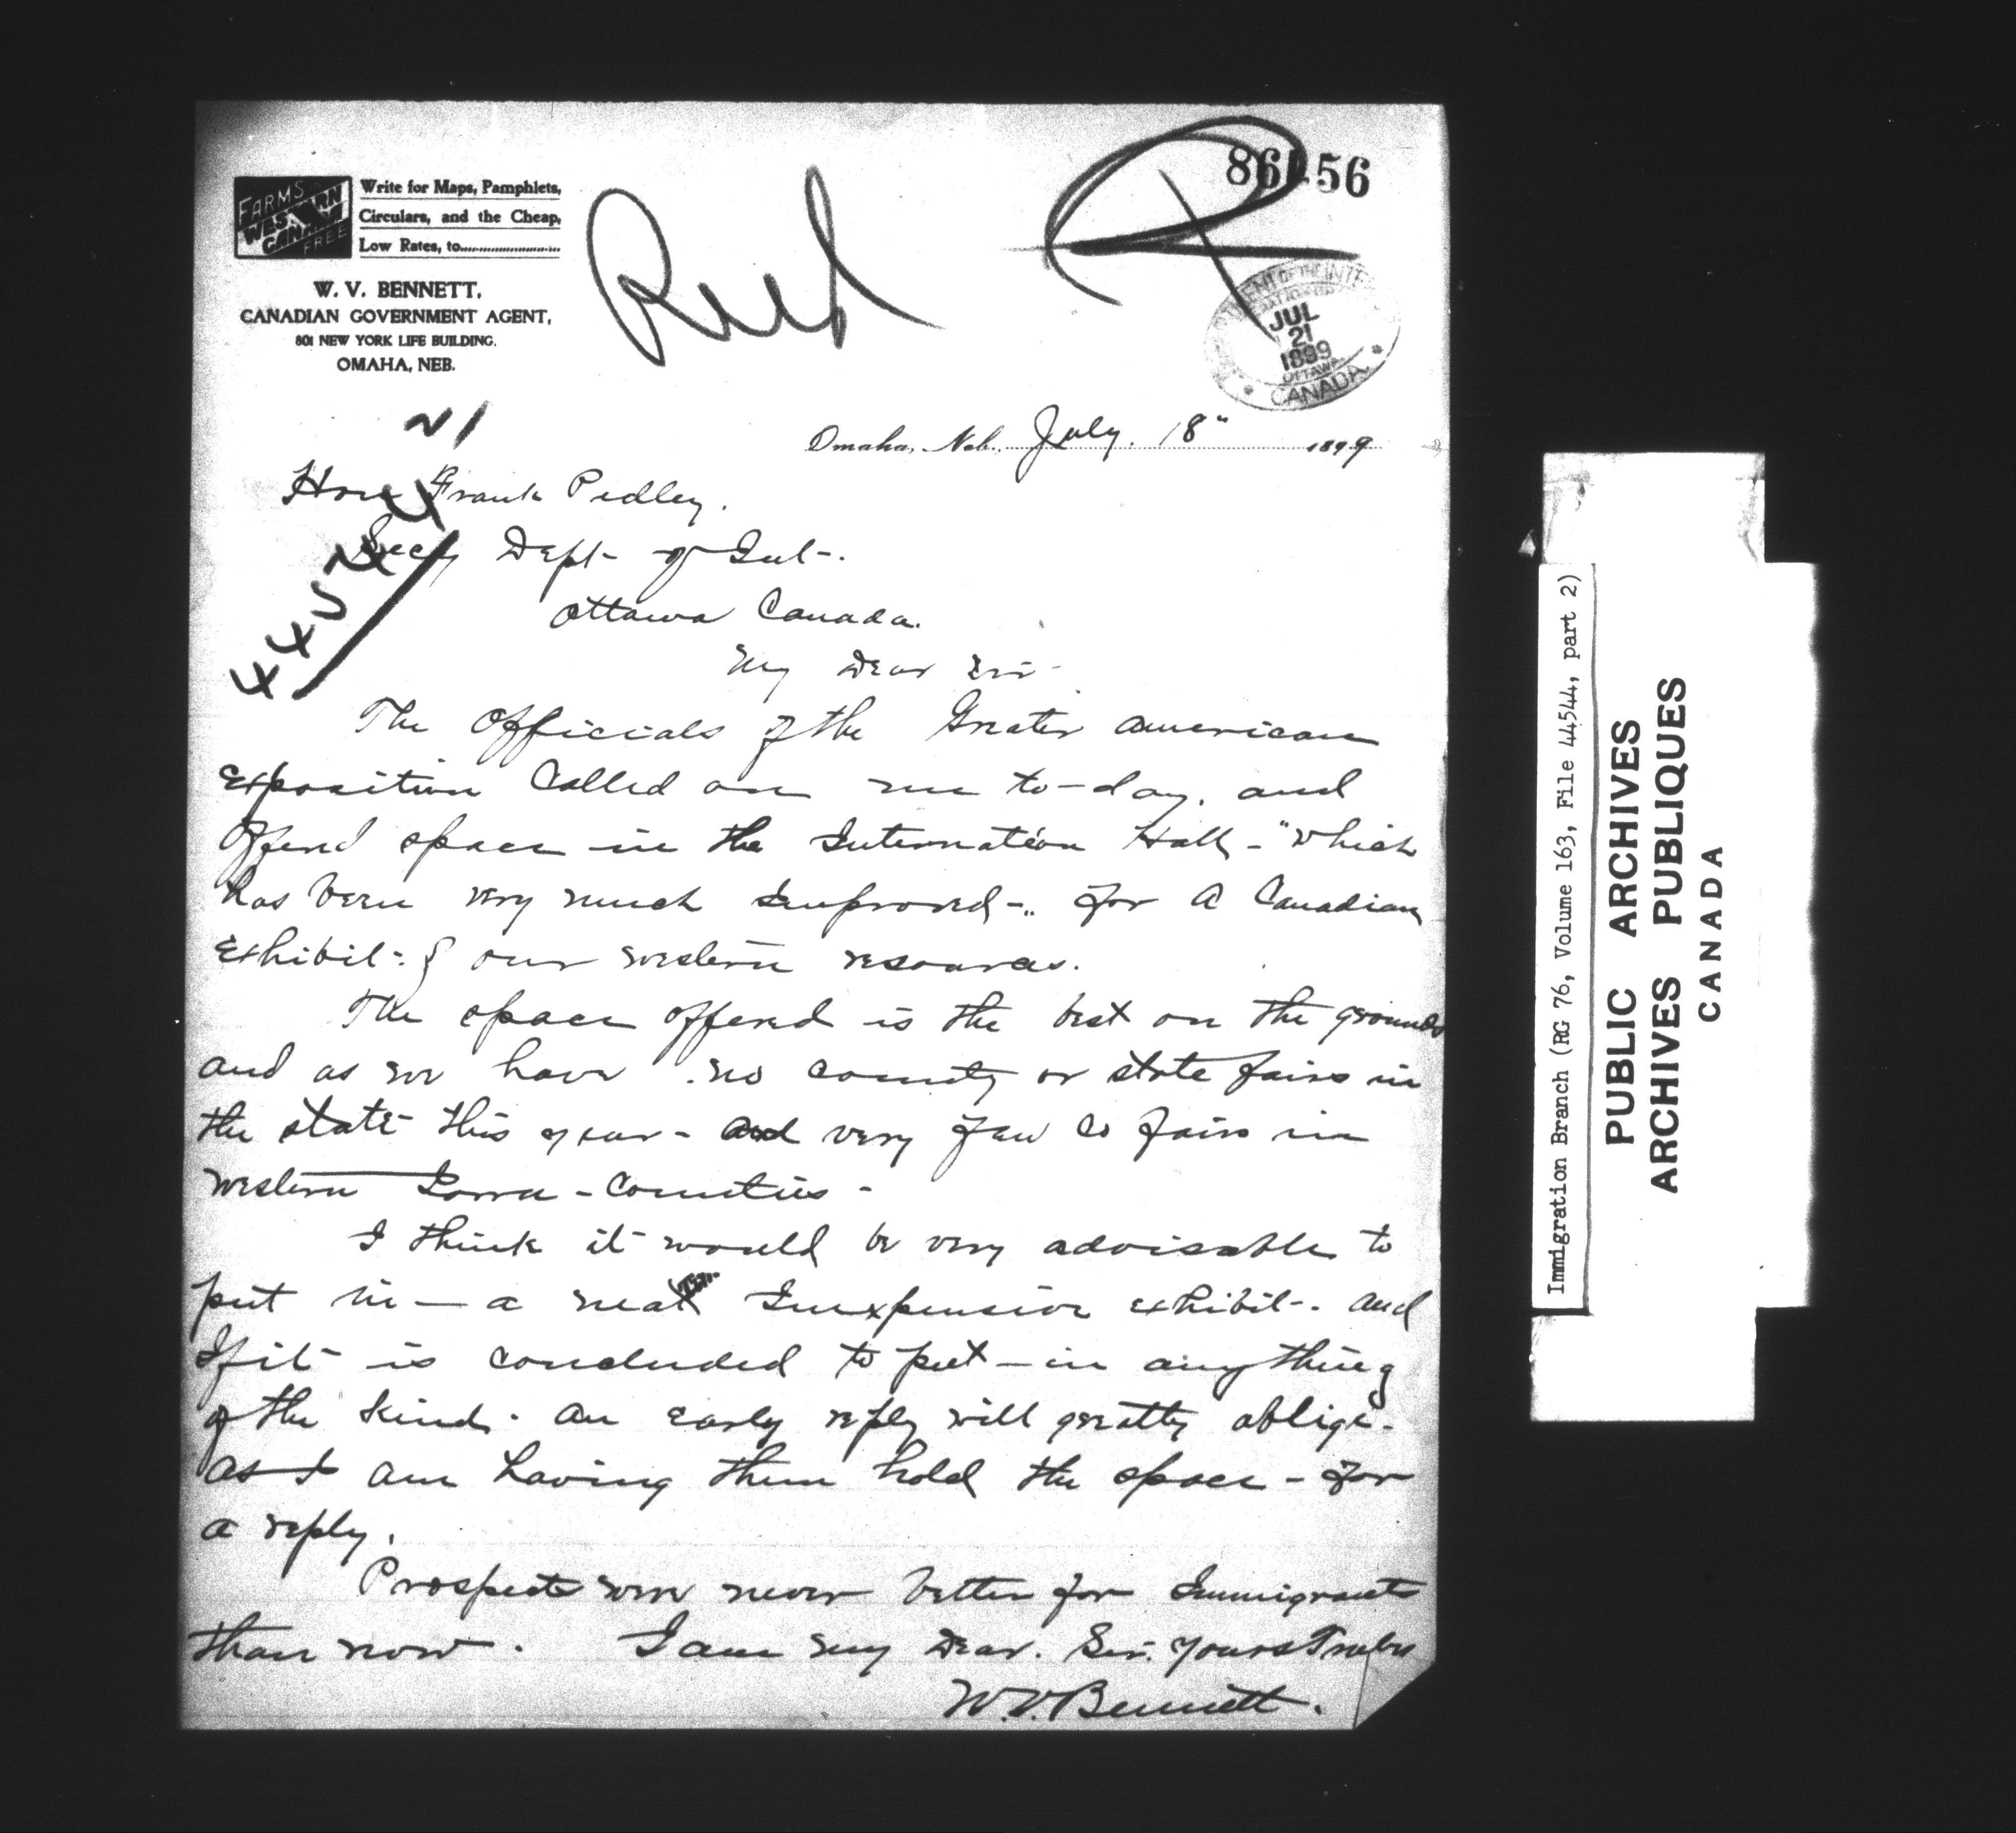 FARMS
WESTERN
CANADA
FREE
Write for Maps, Pamphlets,
Circulars, and the Cheap,
Low Rates, to
W. V. BENNETT,
CANADIAN GOVERNMENT AGENT,
801 NEW YORK LIFE BUILDING.
OMAHA, NEB.
86 56
JUL
21
1899
OTTAWA
CANADA
Omaha, Neb., July. 18" 1899
Hon Frank Pedley.
Secy Dept of Int.
Ottawa Canada.
My Dear Sir
The Officials of the Greater American
Exposition Called on me to-day, and
Offered space in the Internation Hall - "which
has been very much Improved -" for A Canadian
Exhibit of our western resources.
The space offered is the best on the grounds
and as we have no county or state fairs in
the state this year - and very few Co fairs in
western Iowa - Counties -
I think it would be very advisable to
put in - a neat Inexpensive exhibit. and
If it is concluded to put - in anything
of the kind. an early reply will greatly oblige.
as I am having them hold the space - for
a reply.
Prospects were never better for Immigrants
than now. I am my Dear. Sir. Yours Truly
W.V. Bennett.
44544
Immigration Branch (RG 76, Volume 163, File 44544, part 2)
PUBLIC ARCHIVES
ARCHIVES PUBLIQUES
CANADA